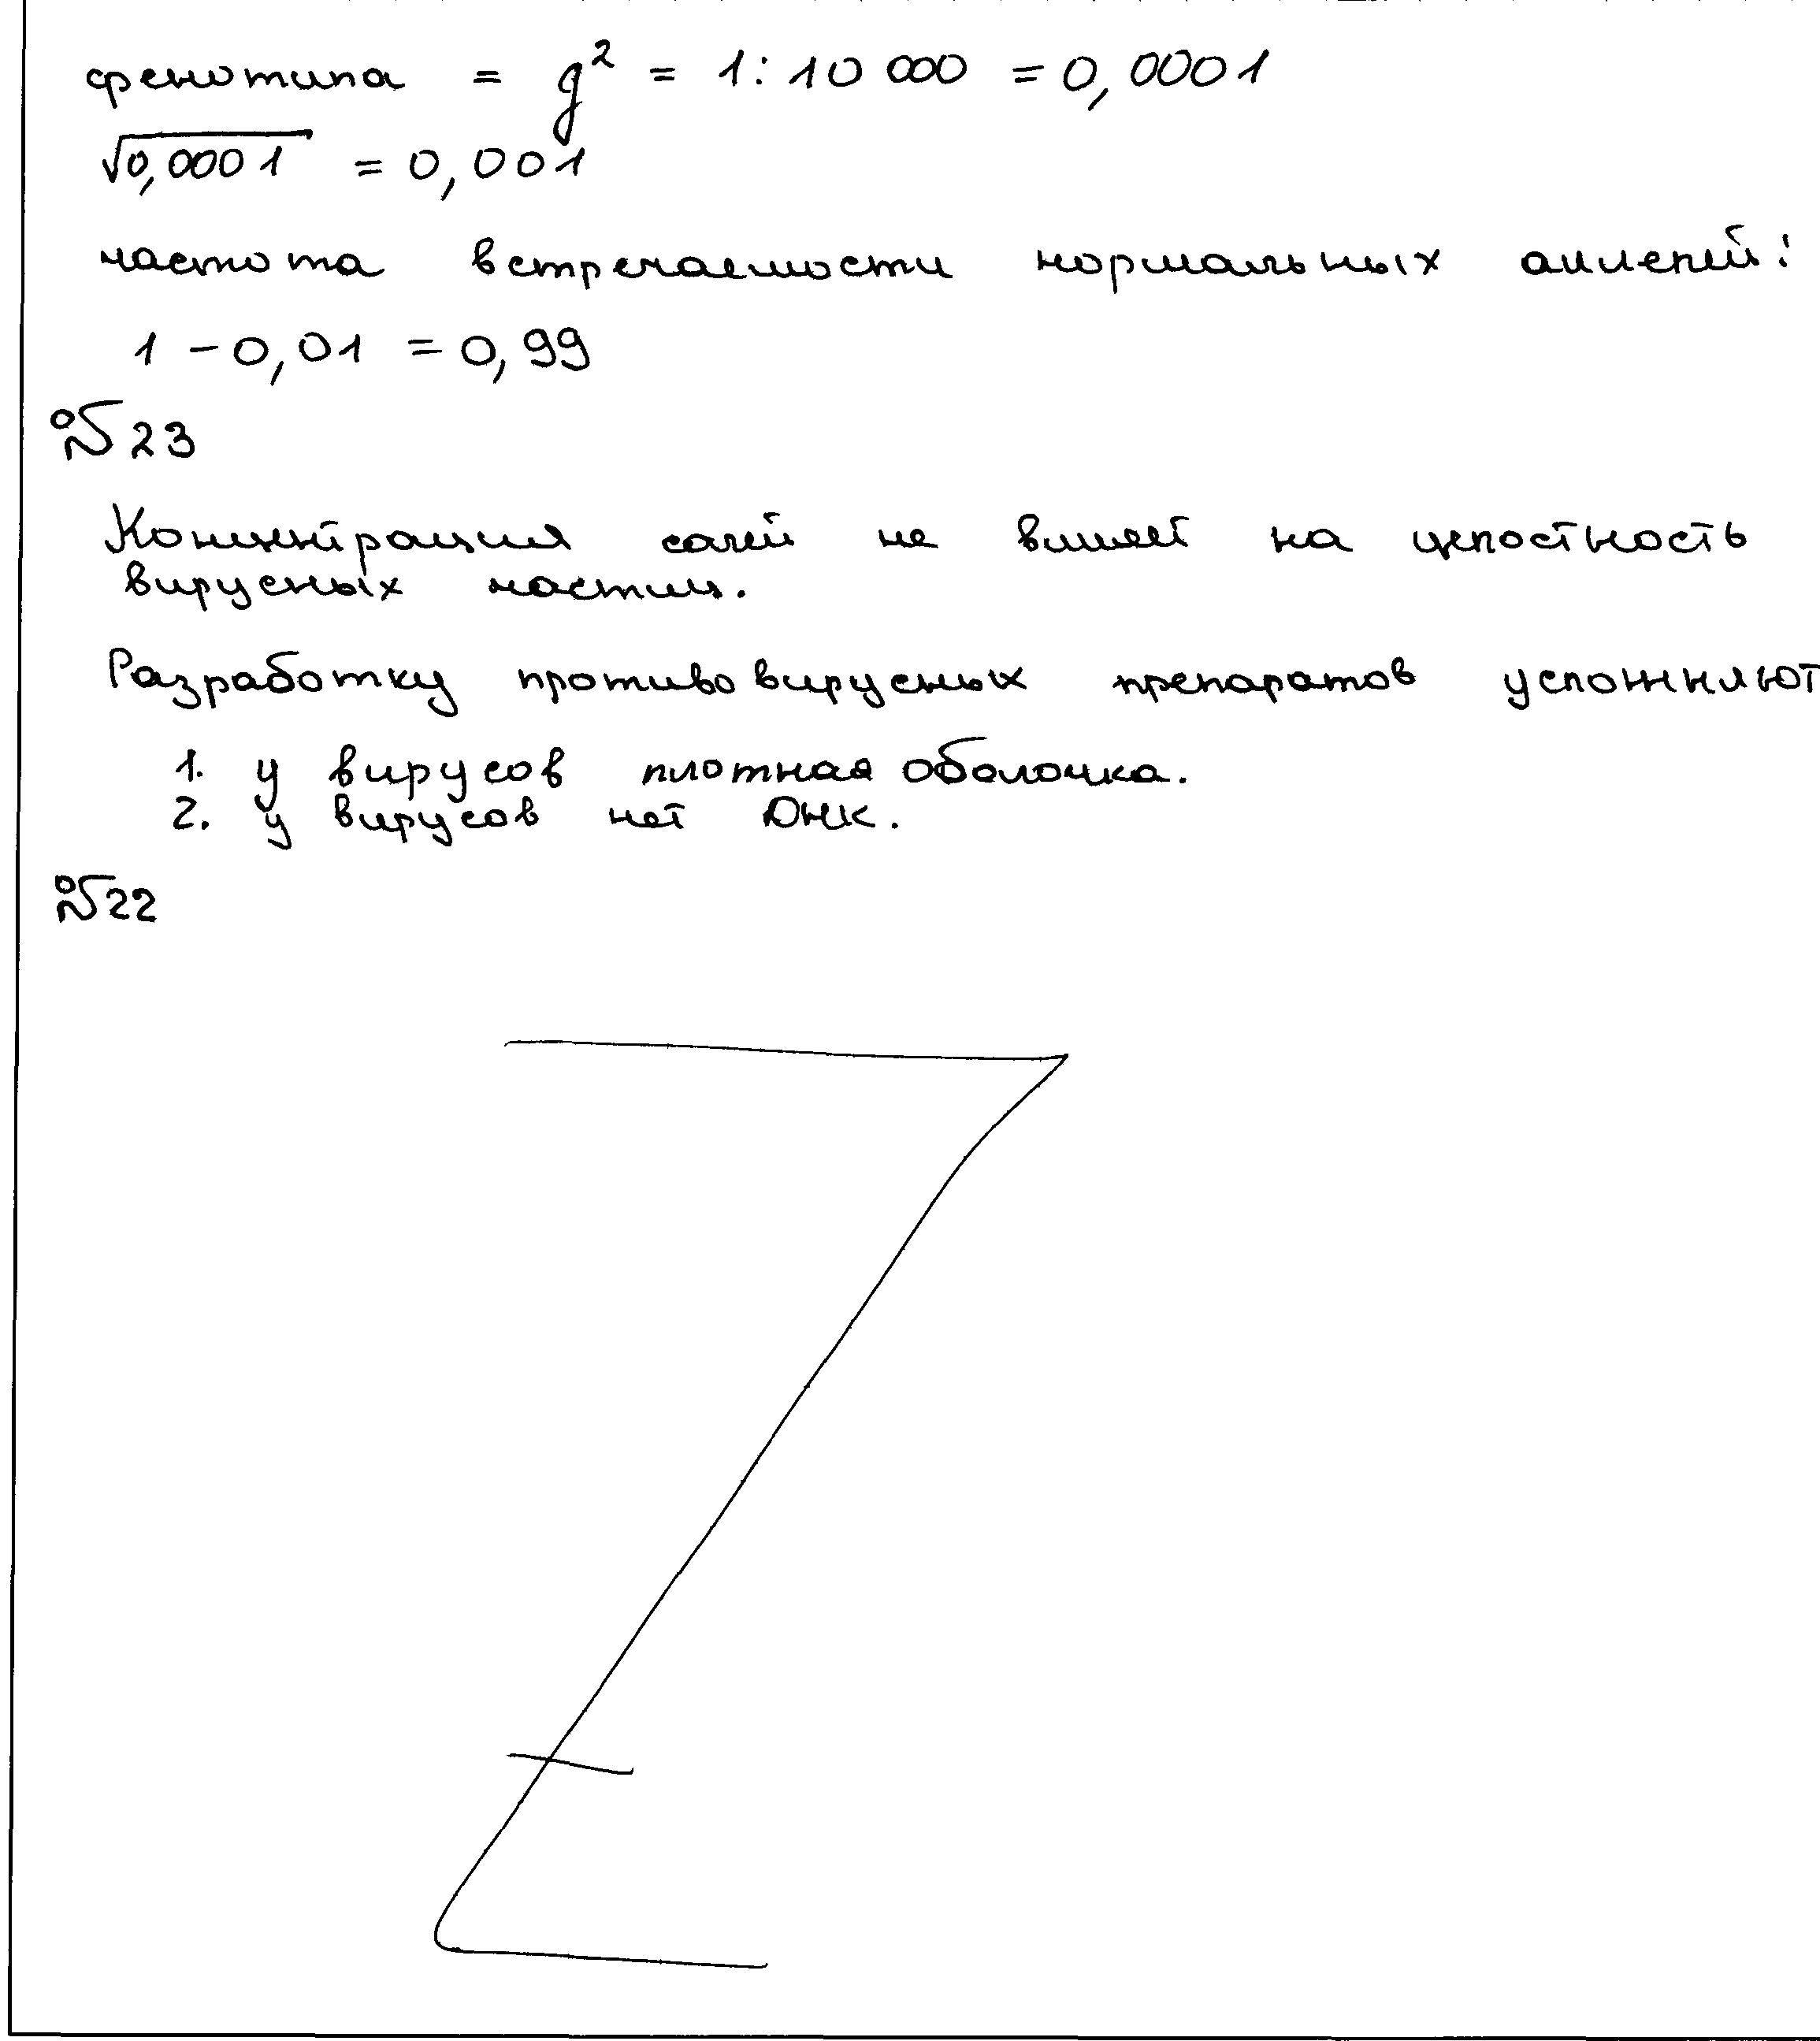 фенотипа = g² = 1:10 000 = 0,0001
√0,0001 = 0,001
частота встречаемости нормальных аллелей:
1 - 0,01 = 0,99
№23
Концентрация солей не влияет на целостность
вирусных частиц.
Разработку противовирусных препаратов усложняют
1. у вирусов плотная оболочка.
2. у вирусов нет ДНК.
№22